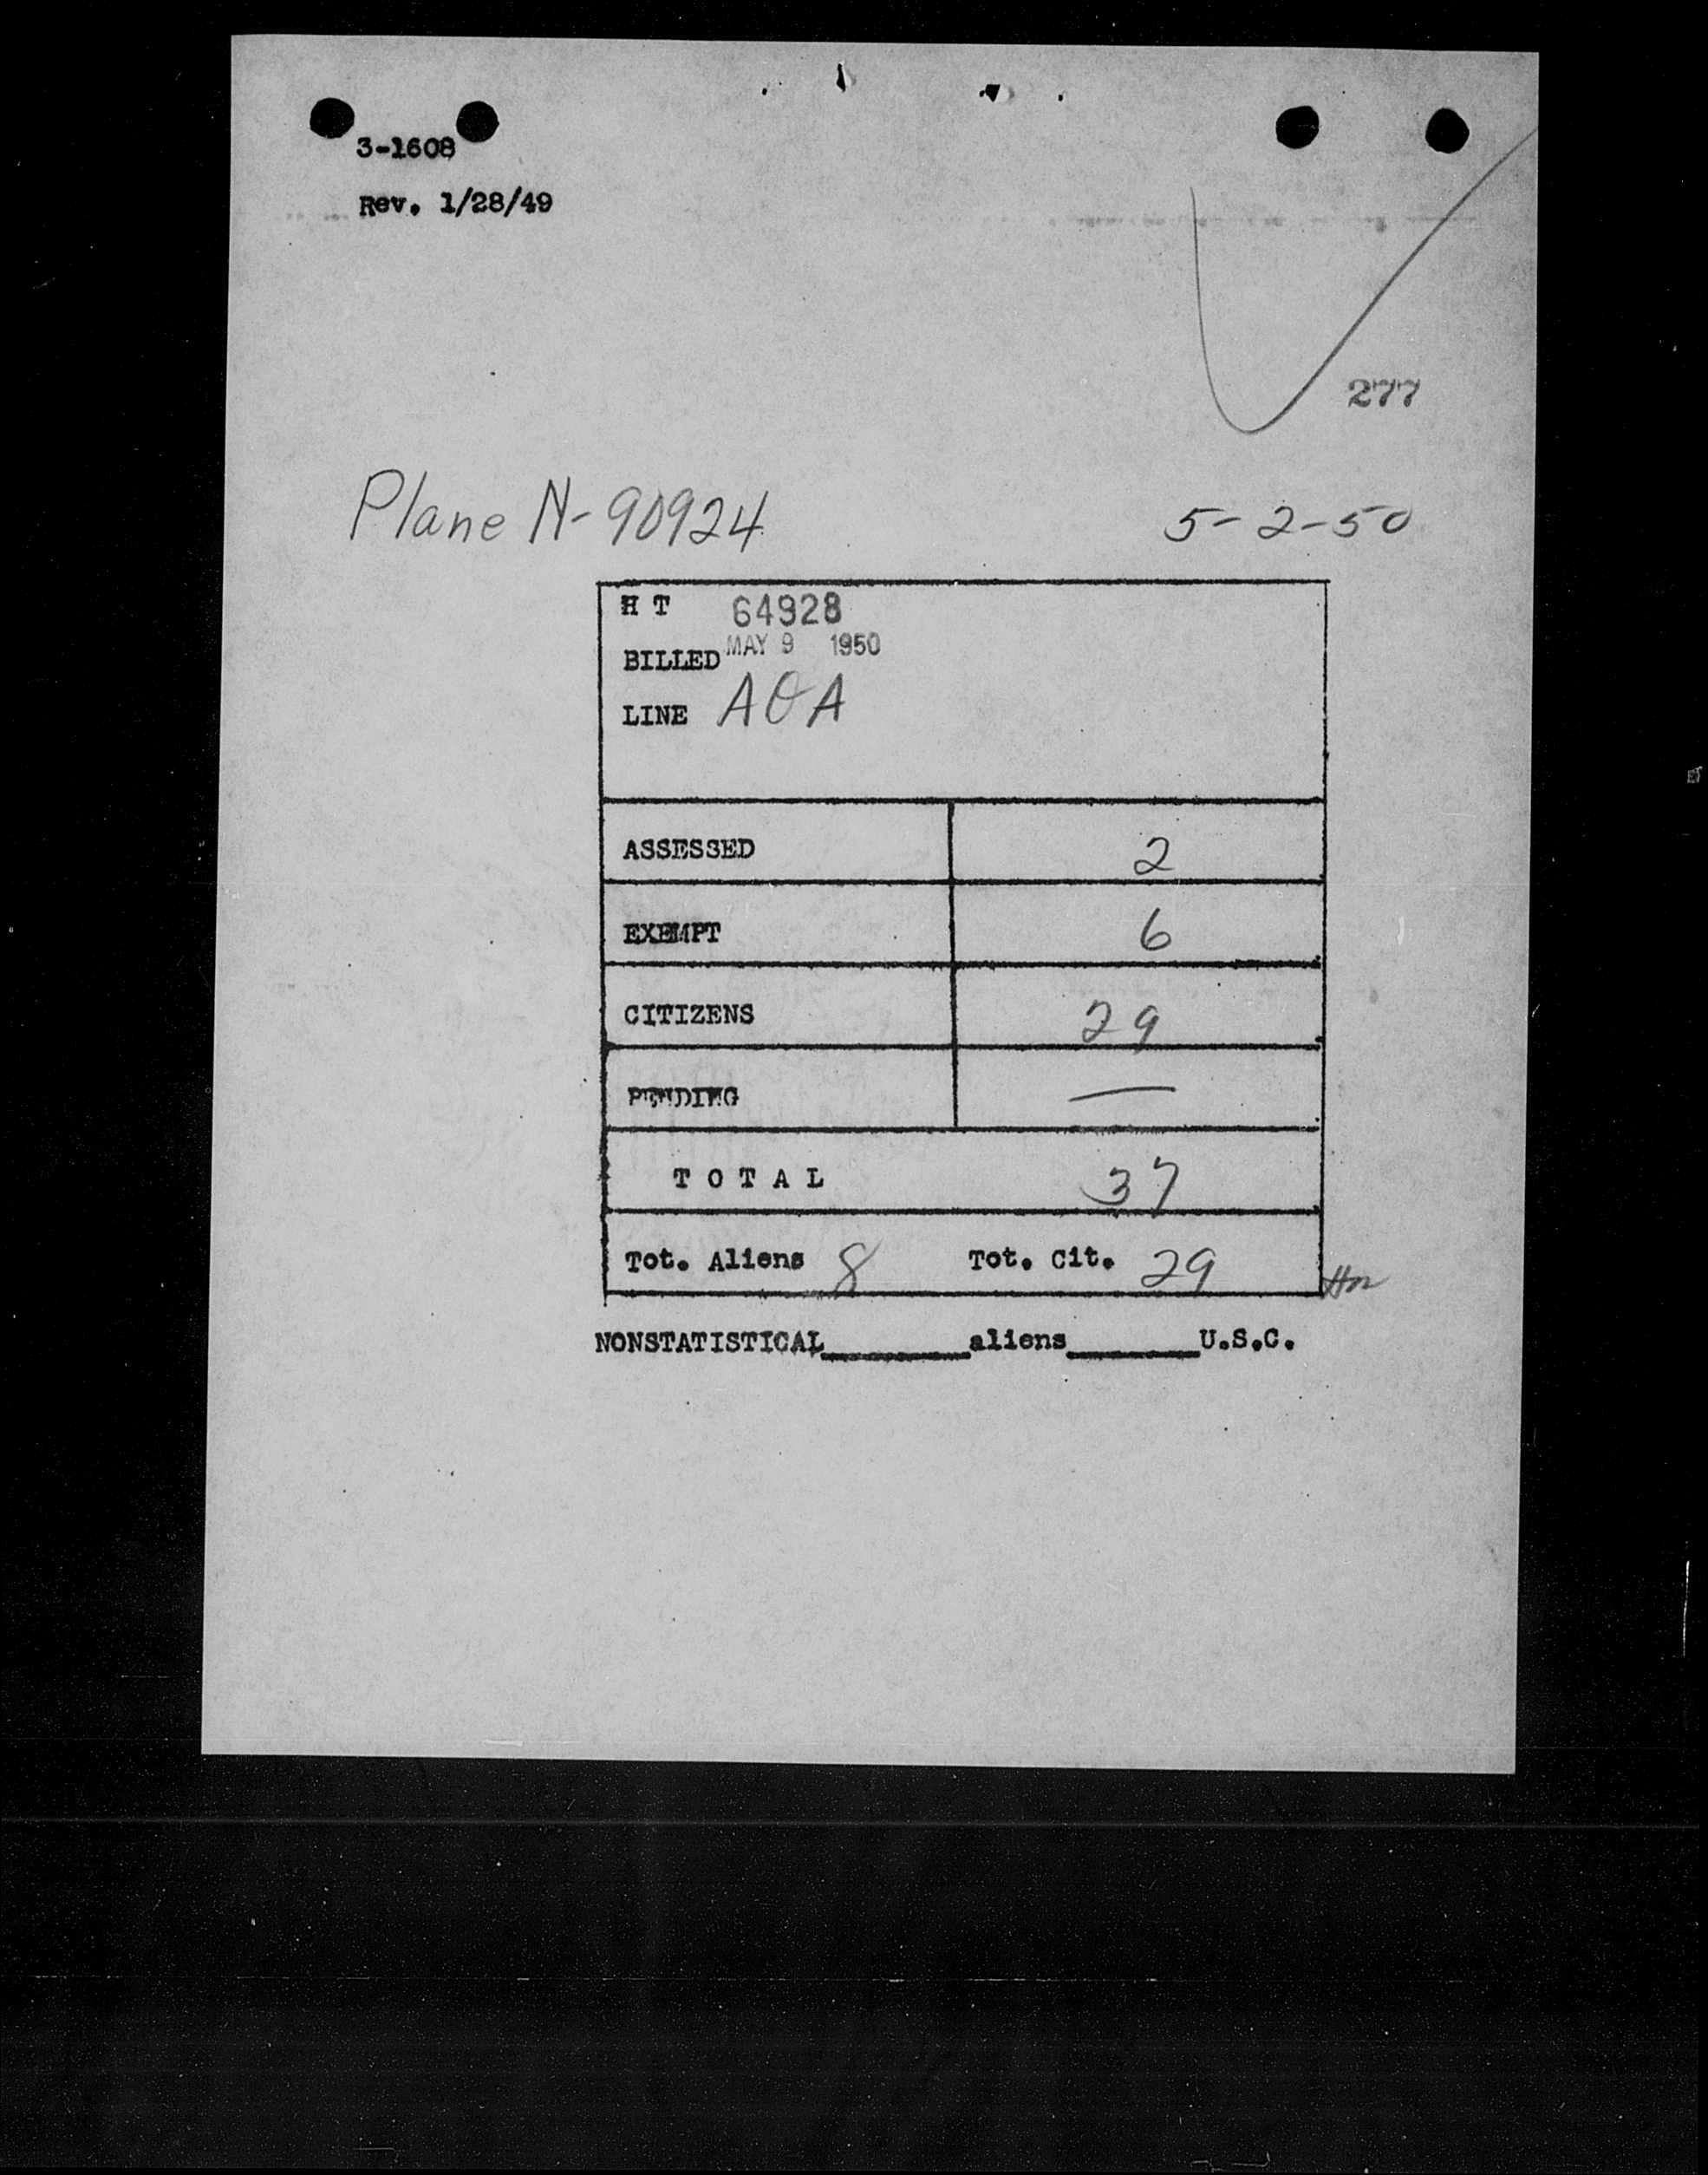 3-1608
Rev. 1/28/49
277
Plane N-90924 5-2-50
H T 64928
BILLED MAY 9 1950
LINE AOA
ASSESSED 2
EXEMPT 6
CITIZENS 29
PENDING —
T O T A L 37
Tot. Aliens 8 Tot. Cit. 29
NONSTATISTICAL________aliens________U.S.C.